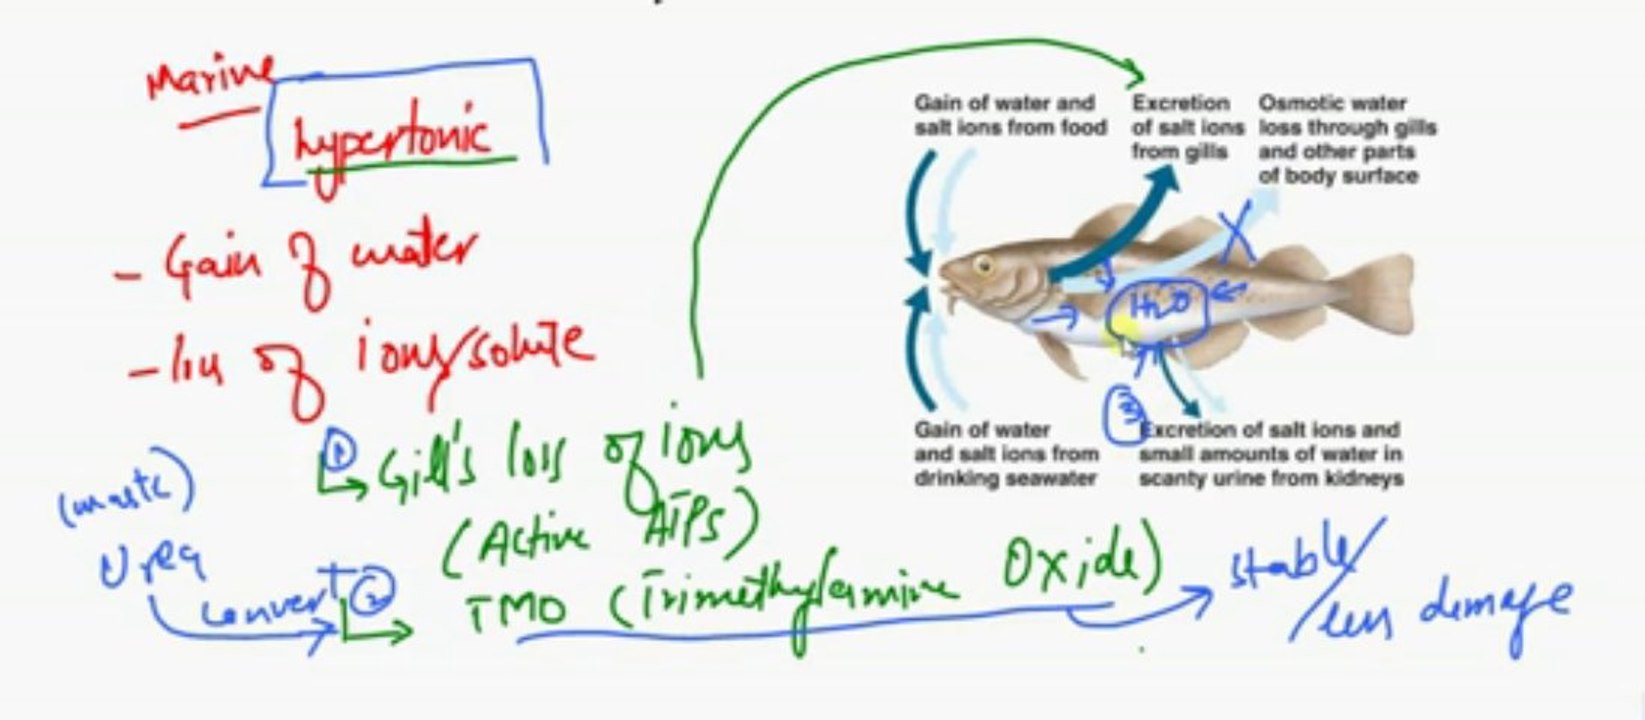 Marine
hypertonic
- Gain of water
- loss of ions/solute
① Gill's loss of ions
(Active ATPS)
(waste)
Urea
convert ②
TMO (Trimethylamine Oxide)
stable/
less damage
Gain of water and
salt ions from food
Excretion
of salt ions
from gills
Osmotic water
loss through gills
and other parts
of body surface
X
H₂O
Gain of water
and salt ions from
drinking seawater
③
Excretion of salt ions and
small amounts of water in
scanty urine from kidneys